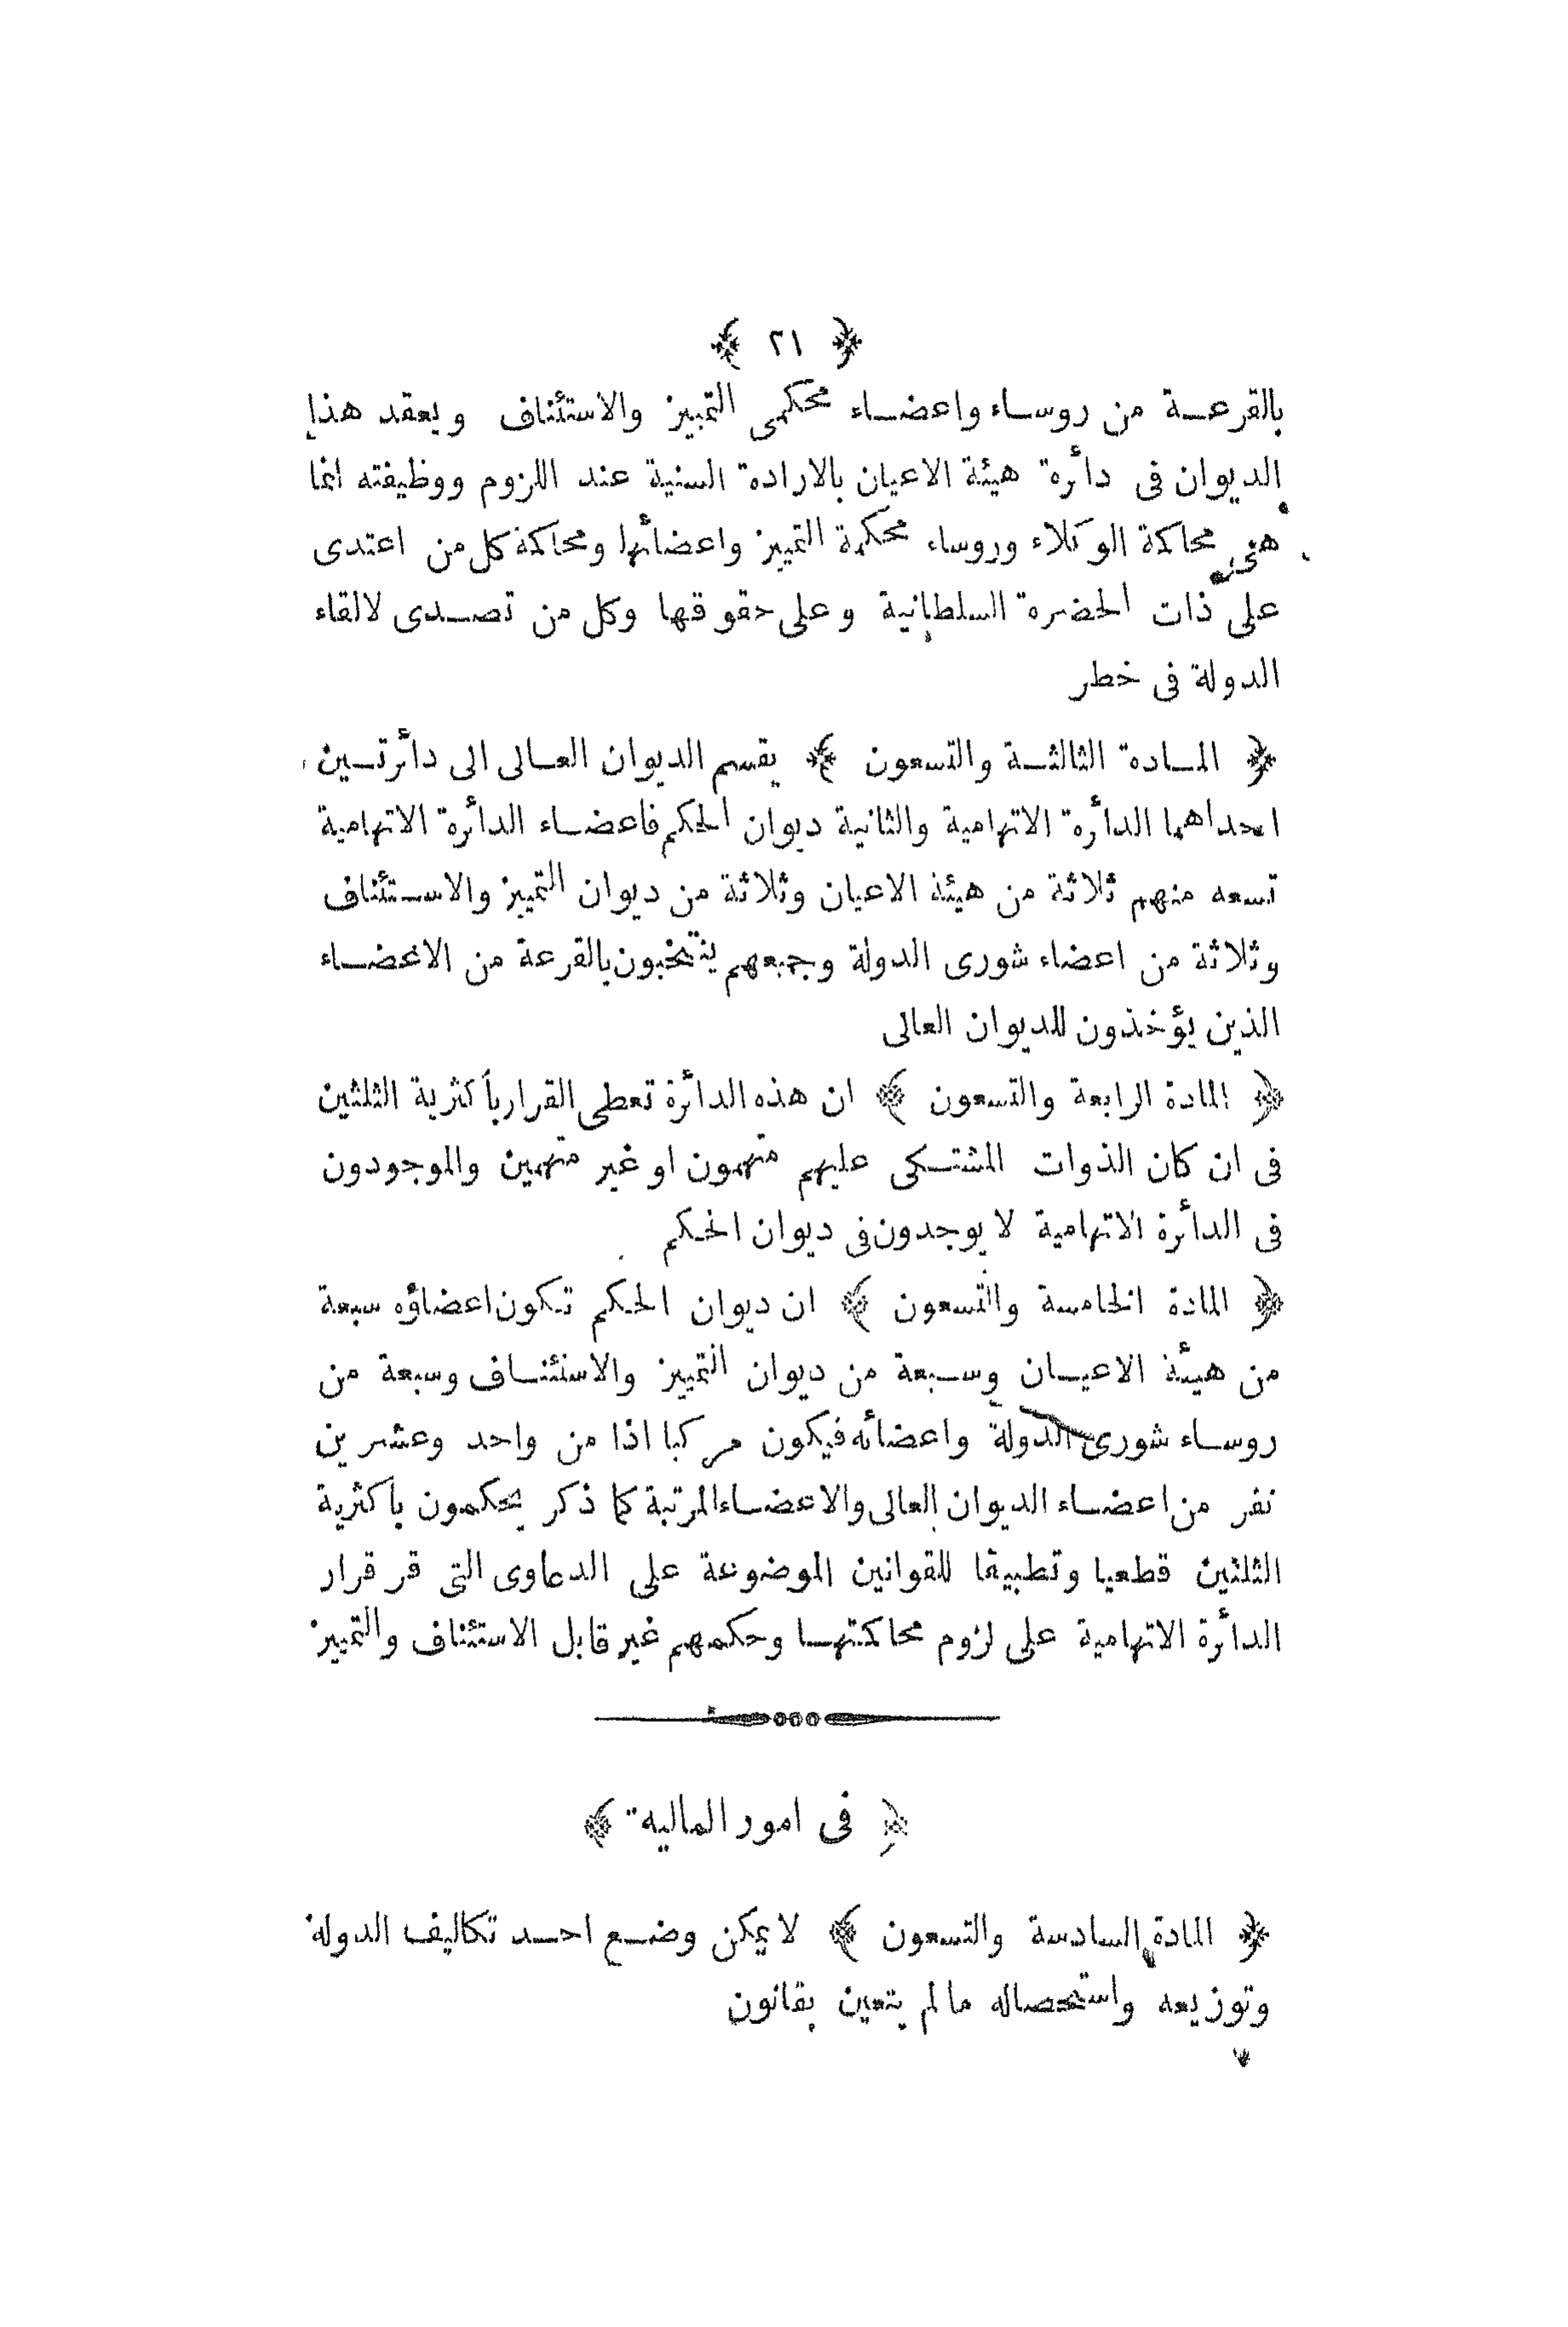 ﴿ ٢١ ﴾
بالقرعة من روساء واعضاء محكمى التمييز والاستئناف ويعقد هذا
الديوان فى دائرة هيئة الاعيان بالارادة السنية عند اللزوم ووظيفته انما
هى محاكمة الوكلاء وروساء محكمة التمييز واعضائها ومحاكمة كل من اعتدى
على ذات الحضرة السلطانية وعلى حقوقها وكل من تصدى لالقاء
الدولة فى خطر
﴿ المادة الثالثة والتسعون ﴾ يقسم الديوان العالى الى دائرتين
احداهما الدائرة الاتهامية والثانية ديوان الحكم فاعضاء الدائرة الاتهامية
تسعه منهم ثلاثة من هيئة الاعيان وثلاثة من ديوان التمييز والاستئناف
وثلاثة من اعضاء شورى الدولة وجميعهم ينتخبون بالقرعة من الاعضاء
الذين يؤخذون للديوان العالى
﴿ المادة الرابعة والتسعون ﴾ ان هذه الدائرة تعطى القرار بأكثرية الثلثين
فى ان كان الذوات المشتكى عليهم متهمون او غير متهمين والموجودون
فى الدائرة الاتهامية لا يوجدون فى ديوان الحكم
﴿ المادة الخامسة والتسعون ﴾ ان ديوان الحكم تكون اعضاؤه سبعة
من هيئة الاعيان وسبعة من ديوان التمييز والاستئناف وسبعة من
روساء شورى الدولة واعضائه فيكون مركبا اذا من واحد وعشرين
نفر من اعضاء الديوان العالى والاعضاء المرتبة كما ذكر يحكمون بأكثرية
الثلثين قطعيا وتطبيقا للقوانين الموضوعة على الدعاوى التى قر قرار
الدائرة الاتهامية على لزوم محاكمتها وحكمهم غير قابل الاستئناف والتمييز
﴿ فى امور المالية ﴾
﴿ المادة السادسة والتسعون ﴾ لا يمكن وضع احد تكاليف الدولة
وتوزيعه واستحصاله مالم يتعين بقانون